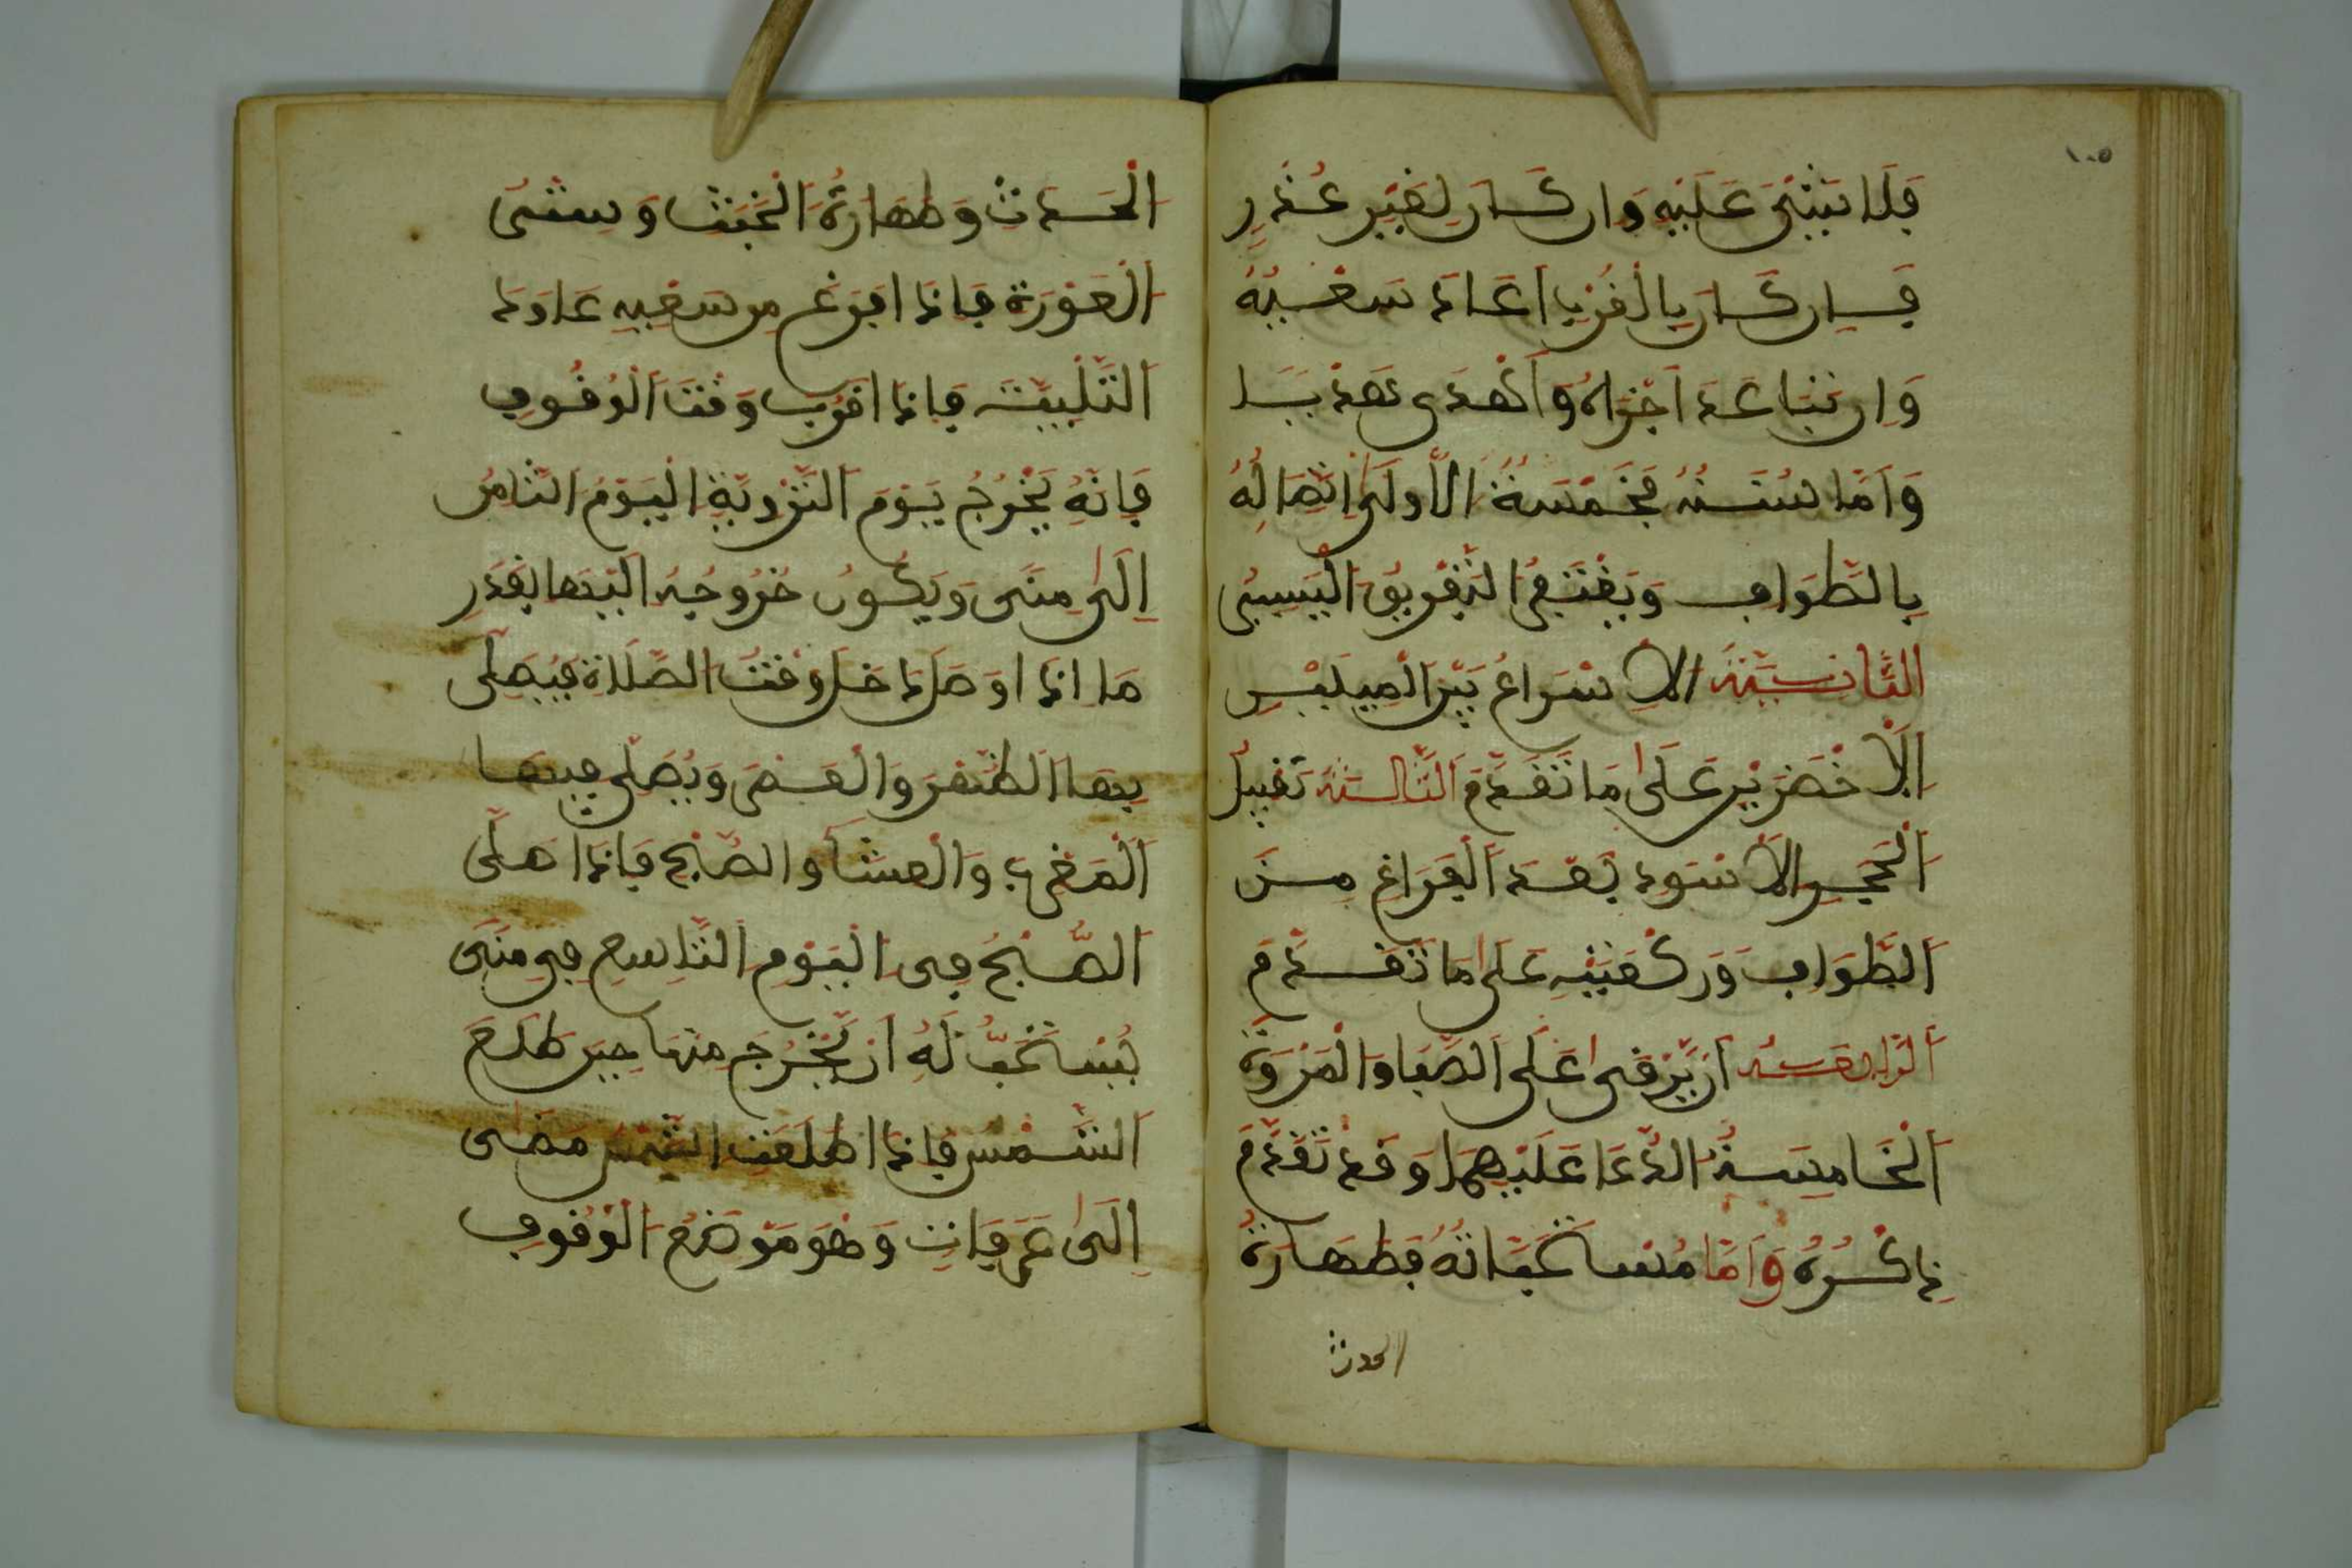 ١٠٥
فَلَا شَيْئَ عَلَيْهِ وَان كَانَ لِغَيْرِ عُذْرٍ
فَإِن كَانَ بِالْقُرْبِ أَعَادَ سَعْيَهُ
وَإِن تَبَاعَدَ أَجْزَاهُ وَأَهْدَى هَدْيَـا
وَأَمَّا سُنَنُهُ فَخَمْسَةٌ الأُولَى اتِّصَالُهُ
بِالطَّوَافِ وَيُغْتَفَرُ التَّفْرِيقُ الْيَسِيرُ
الثَّانِيَةُ الاِسْرَاعُ بَيْنَ الْمِيلَيْنِ
الْأَخْضَرَيْنِ عَلَى مَا تَقَدَّمَ الثَّالِثَةُ تَقْبِيلُ
الْحَجَرِ الْأَسْوَدِ بَعْدَ الْفَرَاغِ مِـنَ
الطَّوَافِ وَرَكْعَتَيْهِ عَلَى مَا تَقَدَّمَ
الرَّابِعَةُ أَن يَّرْقَى عَلَى الصَّفَا وَالْمَرْوَةِ
الْخَامِسَةُ الدُّعَا عَلَيْهِمَا وَقَدْ تَقَدَّمَ
ذِكْرُهُ وَأَمَّا مُسْتَحَبَّاتُهُ فَطَهَارَةُ
الحدث
الْحَدَثِ وَطَهَارَةُ الْخَبَثِ وَسَتْرُ
الْعَوْرَةِ فَإِذَا افْرَغَ مِن سَعْيِهِ عَاوَدَ
التَّلْبِيَةَ فَإِذَا اقْرُبَ وَقْتَ الْوُقُوفِ
فَإِنَّهُ يَخْرُجُ يَوْمَ التَّرْوِيَةِ الْيَوْمُ الثَّامِنُ
إِلَى مِنًى وَيَكُونُ خُرُوجُهُ إِلَيْهَا بِقَدْرِ
مَا اذَا اوَصَلَ دَخَلَ وَقْتُ الصَّلَاةِ فَيُصَلِّى
بِهَا الظُّهْرَ وَالْعَصْرَ وَيُصَلِّى فِيهَا
الْمَغْرِبَ وَالْعِشَأَ وَالصُّبْحَ فَإِذَا اصَلَّى
الصُّبْحَ فِى الْيَوْمِ التَّاسِعِ فِى مِنًى
يُسْتَحَبُّ لَهُ أَن يَّخْرُجَ مِنْهَا حِينَ طُلُوعِ
الشَّمْسِ فَإِذَا اطَلَعَتِ الشَّمْسُ مَضَى
إِلَى عَرَفَاتٍ وَهُوَ مَوْضِعُ الْوُقُوفِ